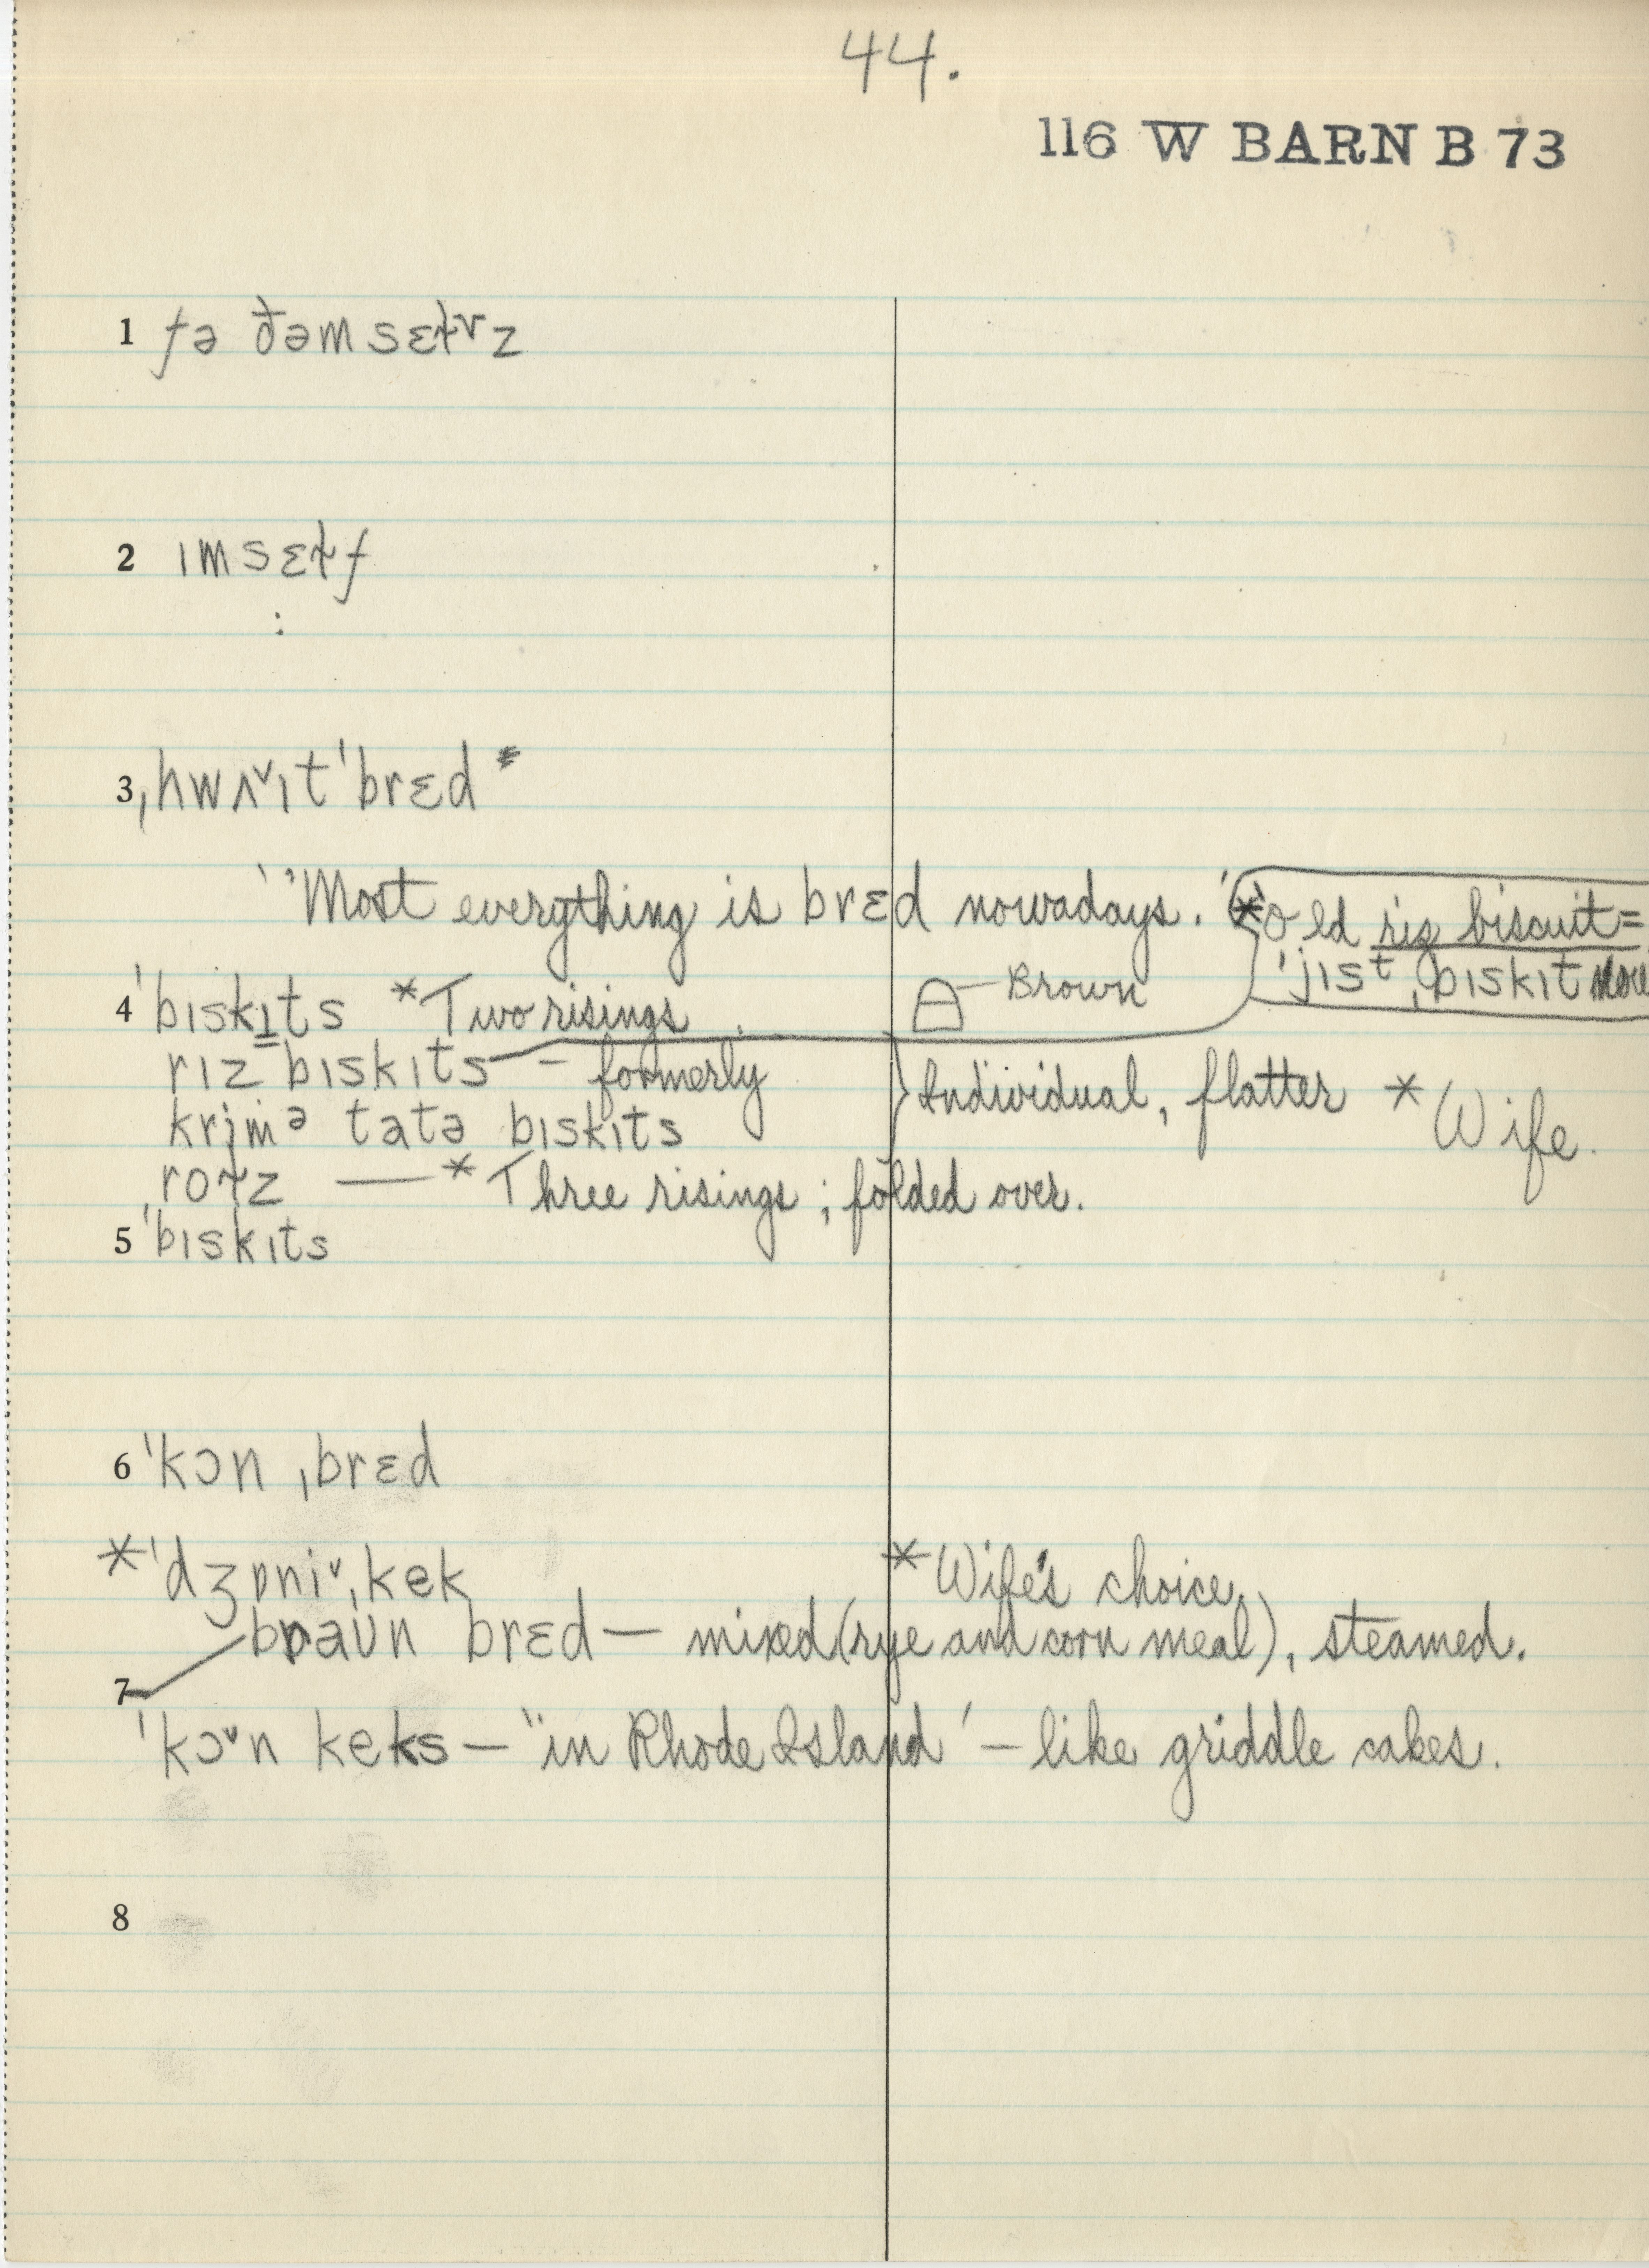 44.
116 W BARN B 73
1 fə ðəm sɛɫvz
2 ɪmsɛɫf
3 ˌhwʌ˅ɪt ˈbrɛd *
‵‵Most everything is brɛd nowadays.′ *Old riz biscuit =
ˈjɪst ˌbɪskɪt now
4 ˈbɪskɪts *Two risings. Brown
rɪz bɪskɪts – formerly } Individual, flatter * Wife.
krimə tatə bɪskɪts
roɫz — * Three risings; folded over.
5 ˈbɪskɪts
6 ˈkɔn ˌbrɛd
* ˈdʒɒni˅ˌkek * Wife's choice
7 braʊn brɛd — mixed (rye and corn meal), steamed.
ˈkɔ˅n keks — ‵‵in Rhode Island′ – like griddle cakes.
8